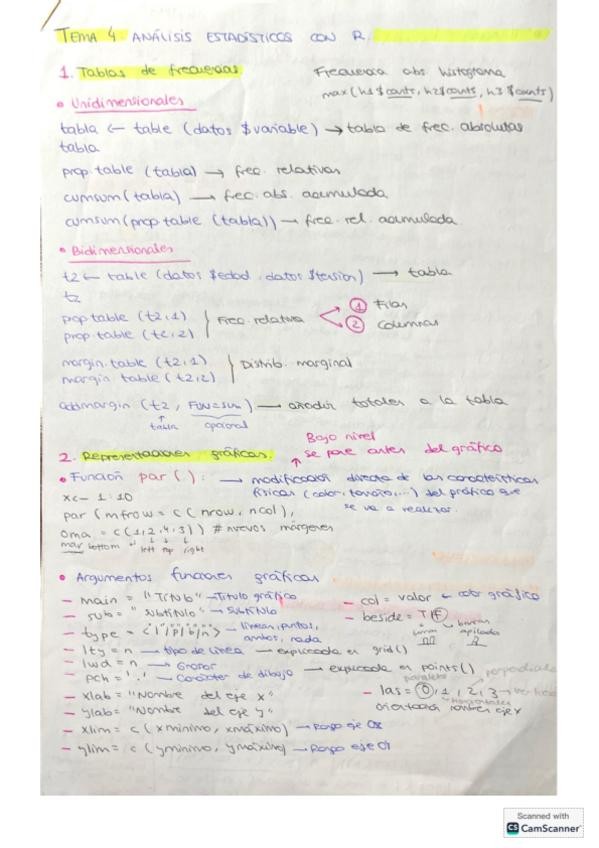 TEMA 4. ANÁLISIS ESTADÍSTICOS CON R.
1. Tablas de frecuencias
Frecuencia abs histograma
max(h1$counts, h2$counts, h3$counts)
• Unidimensionales
tabla <- table (datos $variable) → tabla de frec. absolutas
tabla
prop.table (tabla) → frec. relativas
cumsum(tabla) → frec. abs. acumulada
cumsum(prop.table (tabla)) → frec. rel. acumulada
• Bidimensionales
t2 <- table (datos $edad, datos $tension) → tabla
t2
prop.table (t2,1)
prop.table (t2,2)
Frec. relativa
1 Filas
2 Columnas
margin.table (t2,1)
margin table (t2,2)
Distrib. marginal
addmargin (t2, FUN=sum) → añadir totales a la tabla
tabla
opcional
2. Representaciones gráficas.
Bajo nivel
se pone antes del gráfico
• Función par( ): → modificación directa de las características
físicas (color, tamaño,...) del gráfico que
se va a realizar.
x<- 1:10
par (mfrow = c(nrow, ncol),
oma = c(1,2,4,3)) # nuevos márgenes
mar bottom left top right
• Argumentos funciones gráficas
– main = "Título" → Título gráfico
– sub = "Subtítulo" → Subtítulo
– type = <'l'/'p'/'b'/'n'> → líneas, puntos,
ambos, nada
– lty = n → tipo de línea → explicada en grid()
– lwd = n → Grosor
– pch = '.' → Carácter de dibujo → explicada en points()
– xlab = "Nombre del eje x"
– ylab = "Nombre del eje y"
– xlim = c(xmínimo, xmáximo) → Rango eje OX
– ylim = c(ymínimo, ymáximo) → Rango eje OY
– col = valor ← color gráfico
– beside = T/F → barras
apiladas
barras
perpendiculares
paralelo
– las = 0, 1, 2, 3 → vertical
horizontales
orientación nombres eje x
Scanned with
CS CamScanner